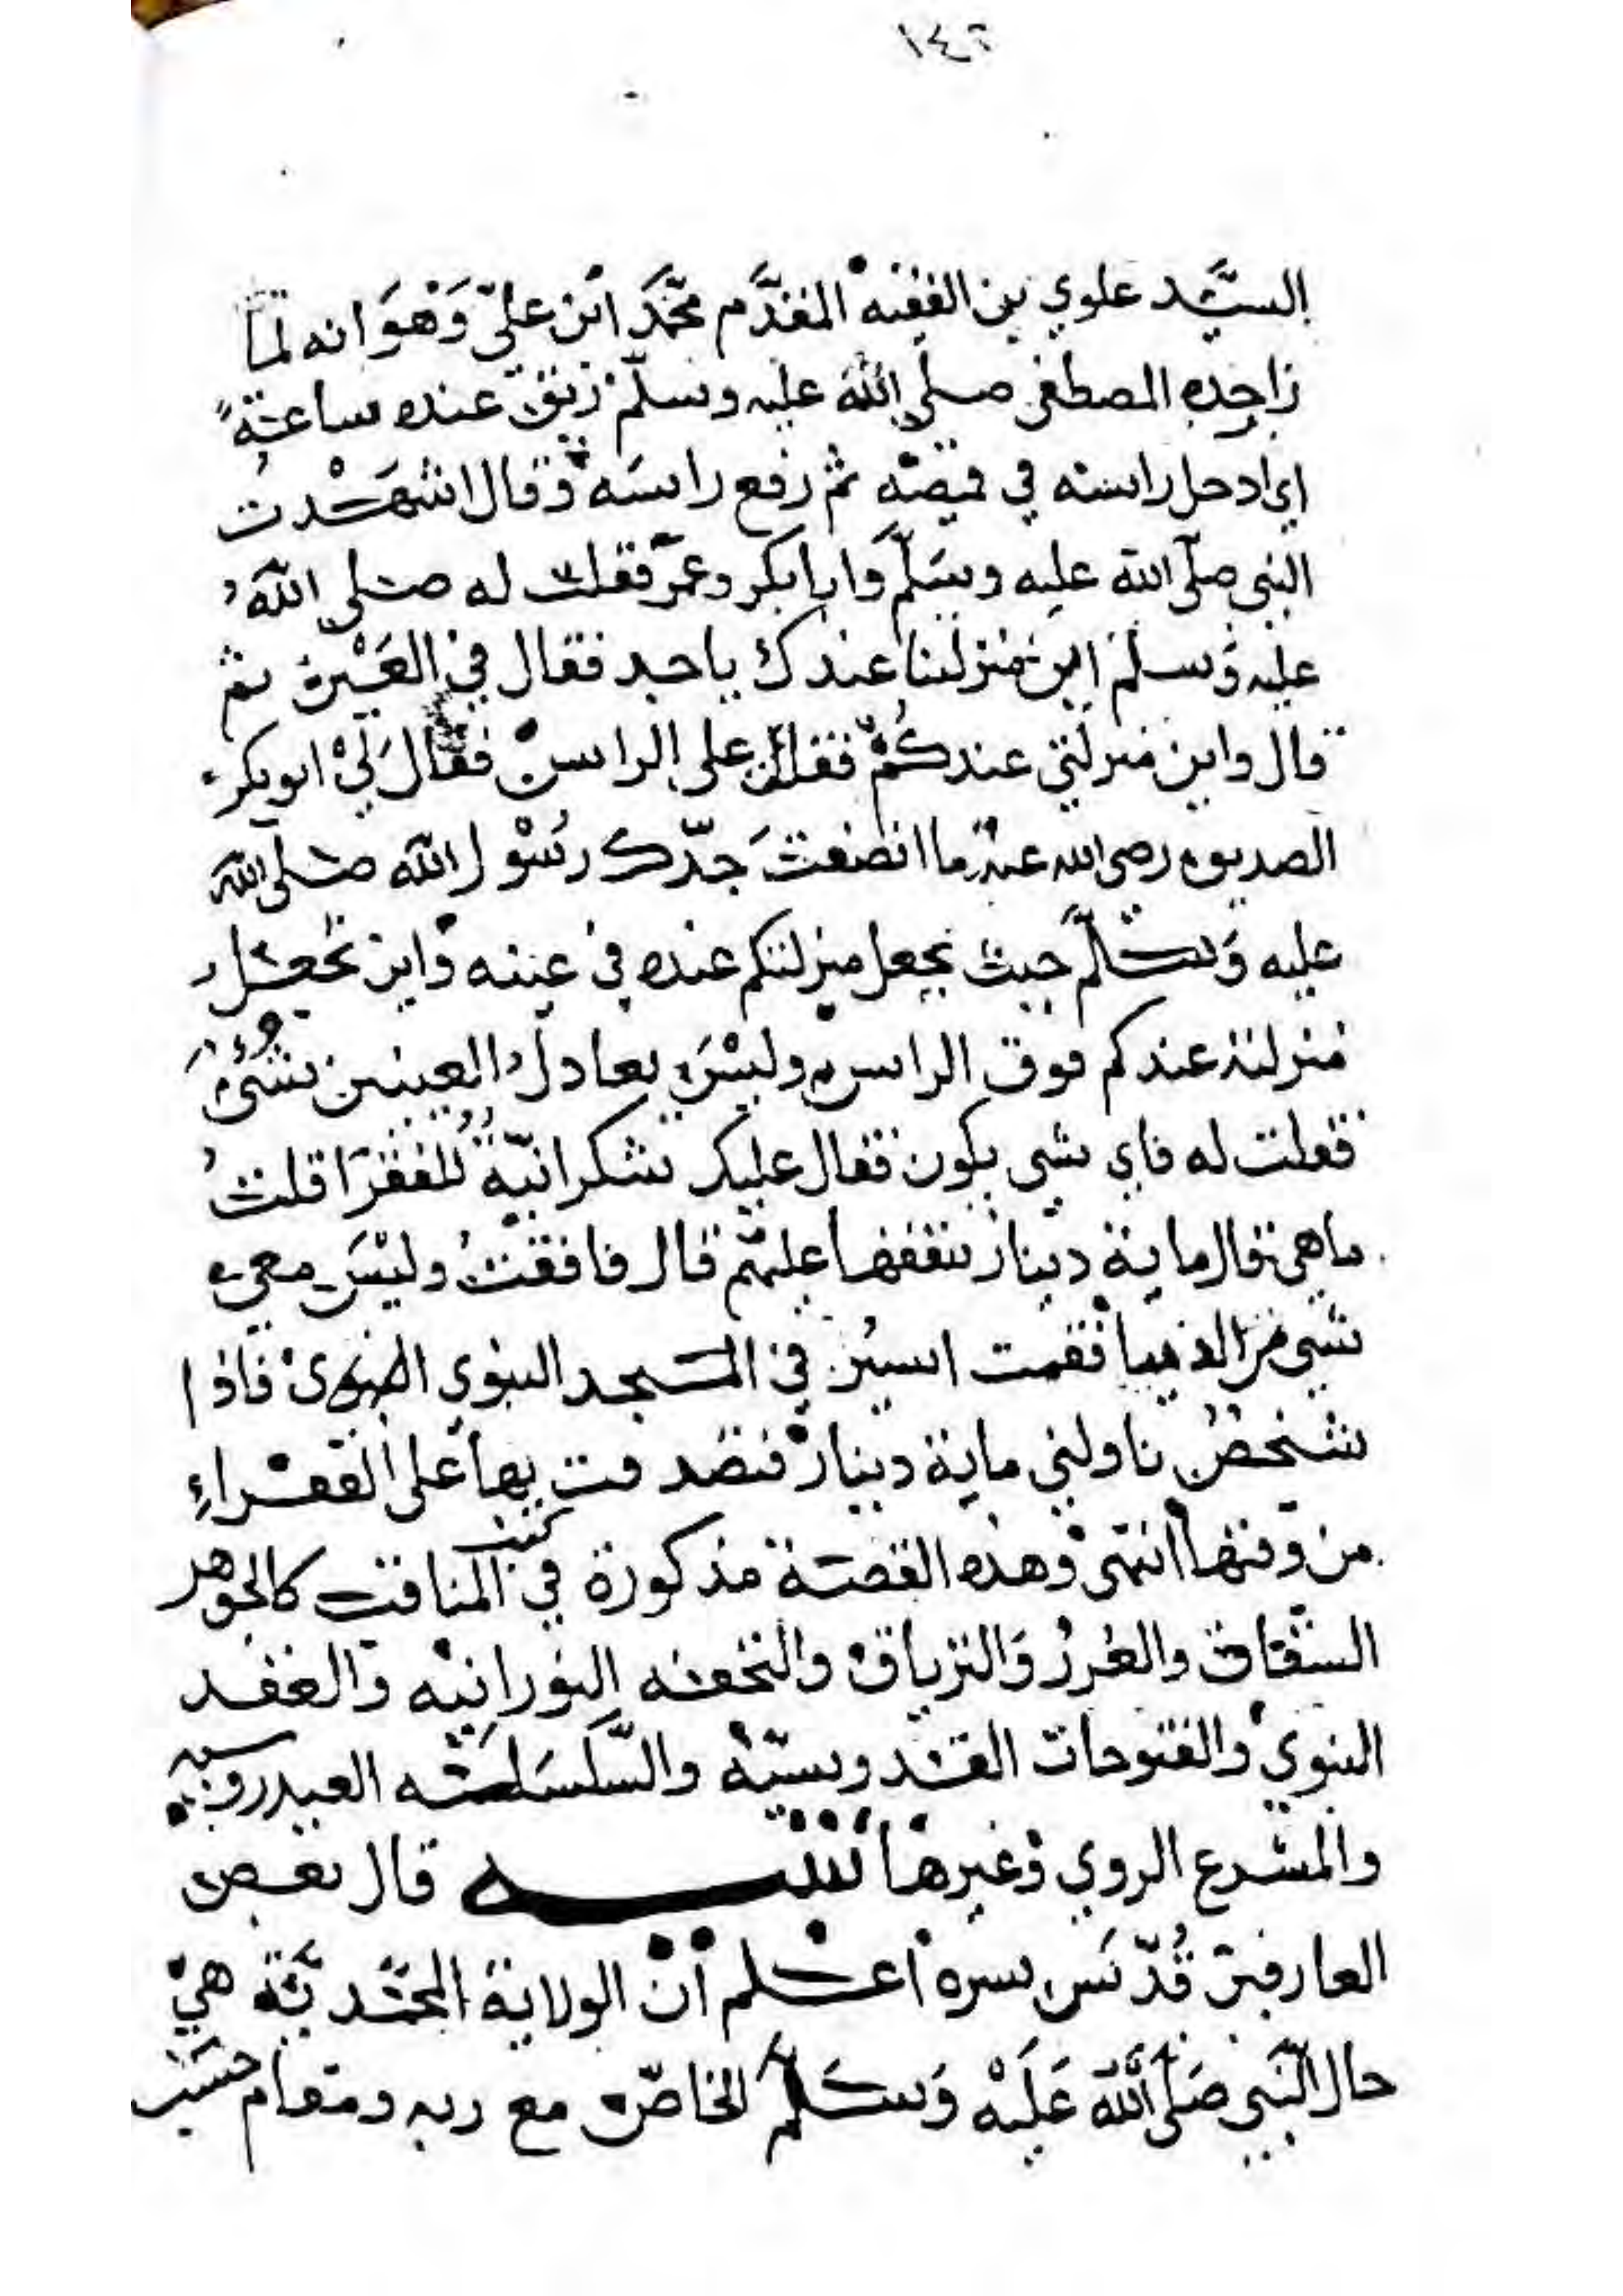 ١٤٦
السيد علوي بن الفقيه المقدم محمد ابن علي وهو انه لما
زار جده المصطفى صلى الله عليه وسلم زيق عنده ساعة
اي ادخل راسه في قميصه ثم رفع راسه وقال شهدت
النبي صلى الله عليه وسلم وابا بكر وعمر فقلت له صلى الله
عليه وسلم اين منزلتنا عندك يا جد فقال في العين ثم
قال واين منزلتي عندكم فقلت على الراس فقال لي ابو بكر
الصديق رضي الله عنه ما انصفت جدك رسول الله صلى الله
عليه وسلم حيث يجعل منزلتكم عنده في عينه واين تجعل
منزلته عندكم فوق الراس وليس يعادل العينين شيء
فقلت له فاي شي يكون فقال عليك شكرانية للفقرا قلت
ما هي قال ماية دينار تنفقها عليهم قال فافقت وليس معي
شي من الذهب فقمت اسير في المسجد النبوي فاذا
شخص ناولني ماية دينار فتصدقت بها على الفقراء
من وقتها انتهى وهذه القصة مذكورة في كتب المناقب كالجوهر
الشفاف والغرر والترياق والتحفه النورانيه والعقد
النبوي والفتوحات القدوسيه والسلسلة العيدروسيه
والمشرع الروي وغيرها تنبيه قال بعض
العارفين قدس سره اعلم ان الولاية المحمدية هي
حال النبي صلى الله عليه وسلم الخاص مع ربه ومقام